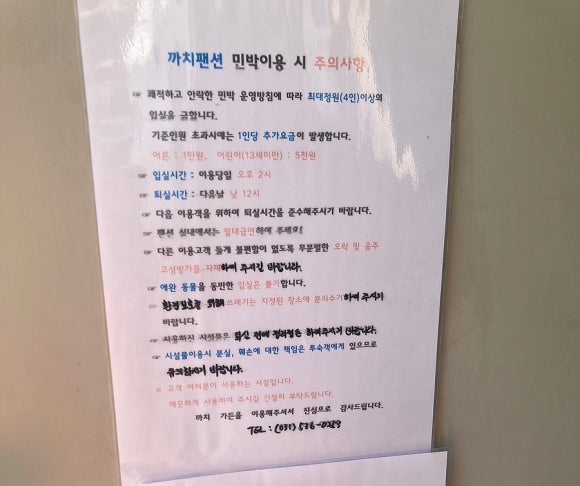 까치팬션 민박이용 시 주의사항
☞ 쾌적하고 안락한 민박 운영방침에 따라 최대정원(4인)이상의
입실을 금합니다.
기준인원 초과시에는 1인당 추가요금이 발생합니다.
어른 : 1만원, 어린이(13세미만) : 5천원
☞ 입실시간 : 이용당일 오후 2시
☞ 퇴실시간 : 다음날 낮 12시
☞ 다음 이용객을 위하여 퇴실시간을 준수해주시기 바랍니다.
☞ 팬션 실내에서는 절대금연하여 주세요!
☞ 다른 이용고객 들게 불편함이 없도록 무분별한 오락 및 음주
고성방가를 자제하여 주시길 바랍니다.
☞ 애완 동물을 동반한 입실은 불가합니다.
☞ 환경보호를 위해 쓰레기는 지정된 장소에 분리수거하여 주시기
바랍니다.
☞ 사용하진 시설물은 퇴실 전에 정리정돈 하여주시기 바랍니다.
☞ 시설물이용시 분실, 훼손에 대한 책임은 투숙객에게 있으므로
유의하시기 바랍니다.
※ 고객 여러분이 사용하는 시설입니다.
깨끗하게 사용하여 주시길 간절히 부탁드립니다.
까치 가든을 이용해주셔서 진심으로 감사드립니다.
TEL : (031) 536-